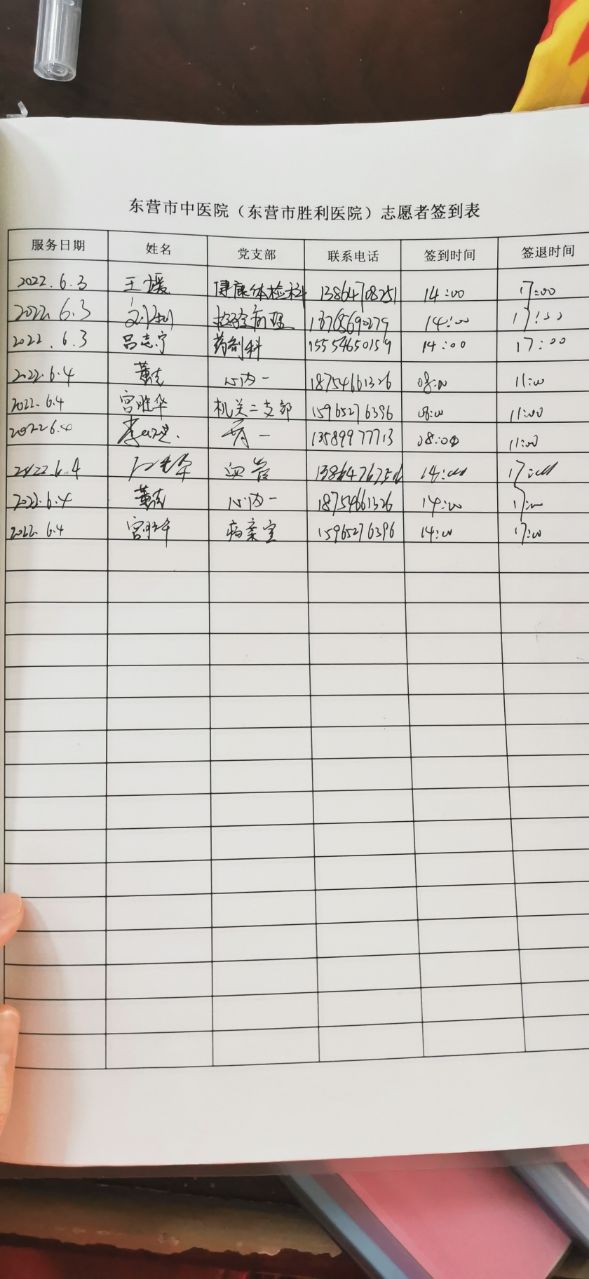 东营市中医院（东营市胜利医院）志愿者签到表
服务日期 姓名 党支部 联系电话 签到时间 签退时间
2022.6.3 王媛 健康体检科 13864708251 14:00 17:00
2022.6.3 检验病理 14:00 17:00
2022.6.3 吕志宁 药剂科 15554650159 14:00 17:00
2022.6.4 董 心内一 18754661326 08:00 11:00
2022.6.4 宫胜华 机关二支部 15965276396 08:00 11:00
2022.6.4 一 13589977713 08:00 11:00
2022.6.4 14:00 17:00
2022.6.4 董 心内一 18754661326 14:00 17:00
2022.6.4 宫胜华 病案室 15965276396 14:00 17:00